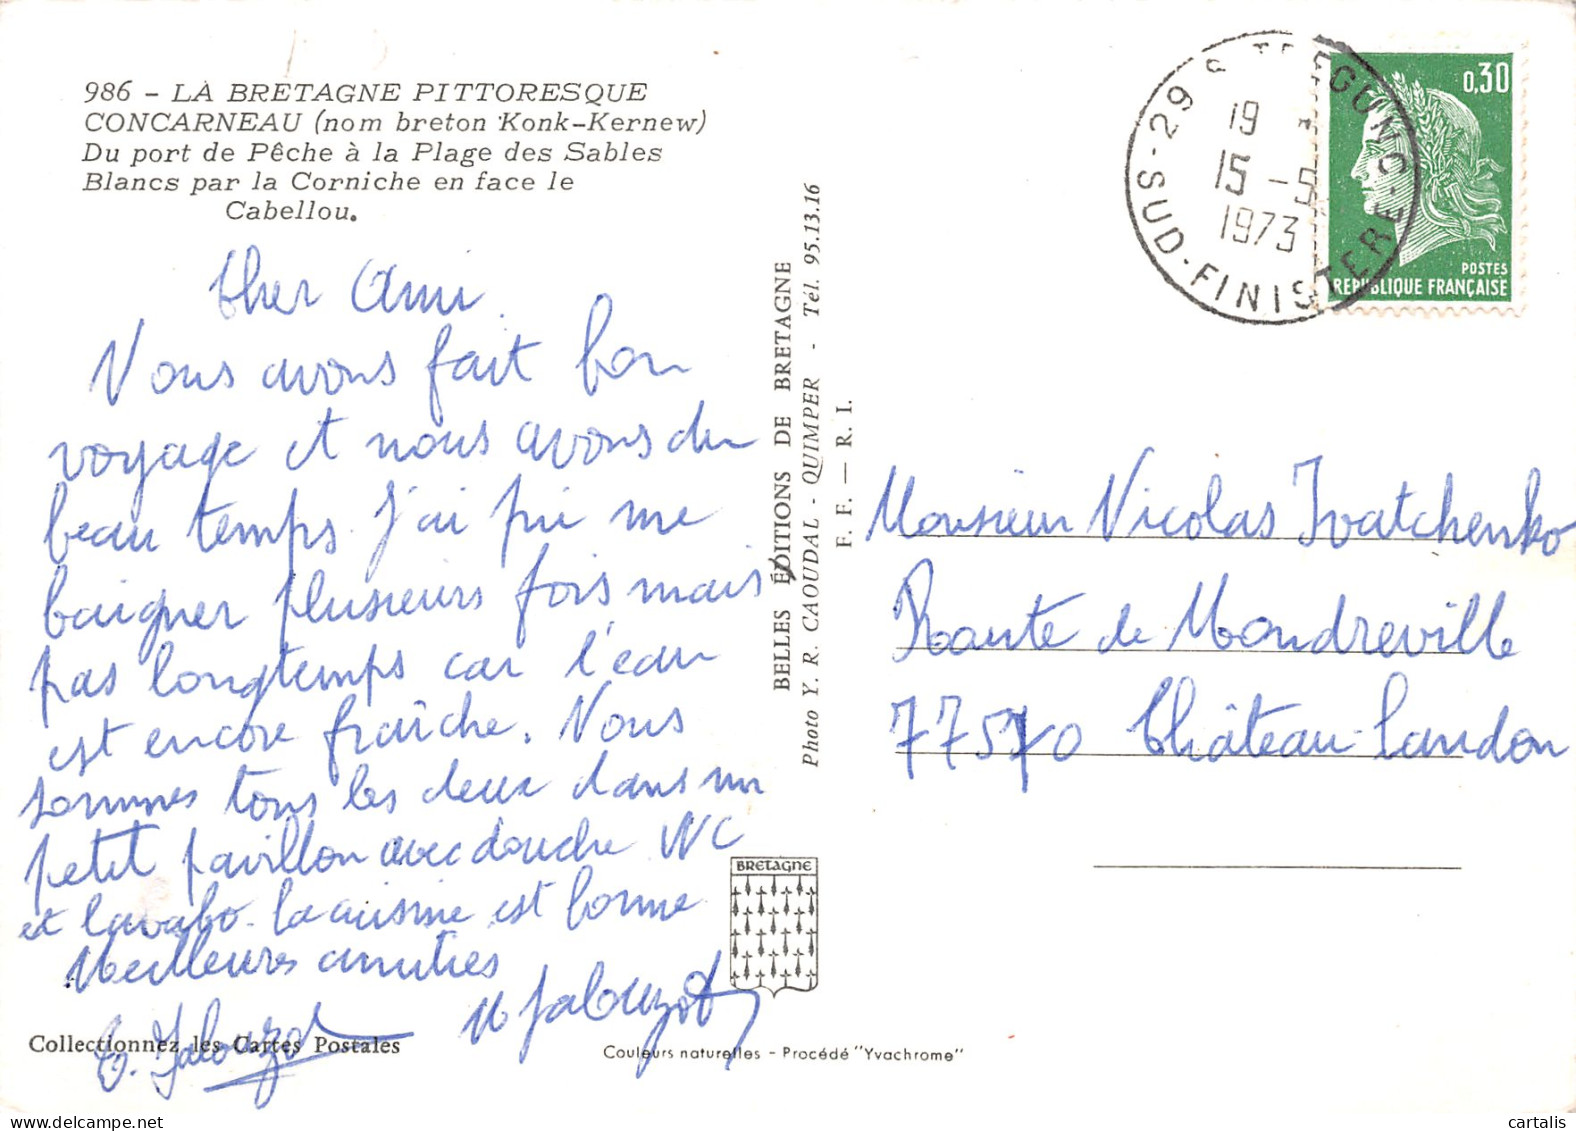 986 - LA BRETAGNE PITTORESQUE
CONCARNEAU (nom breton Konk-Kernew)
Du port de Pêche à la Plage des Sables
Blancs par la Corniche en face le
Cabellou.
Cher Ami.
Nous avons fait bon
voyage et nous avons du
beau temps. J'ai pu me
baigner plusieurs fois mais
pas longtemps car l'eau
est encore fraîche. Nous
sommes tous les deux dans un
petit pavillon avec douche WC
et lavabo. la cuisine est bonne
Meilleures amitiés
Collectionnez les Cartes Postales
BELLES ÉDITIONS DE BRETAGNE
Photo Y. R. CAOUDAL - QUIMPER - Tél. 95.13.16
F. F. — R. I.
BRETAGNE
Couleurs naturelles - Procédé "Yvachrome"
29
19
15-5
1973
SUD-FINISTERE
0,30
POSTES
REPUBLIQUE FRANÇAISE
Monsieur Nicolas Ivatchenko
Route de Mondreville
77570 Château-Landon
cartalis